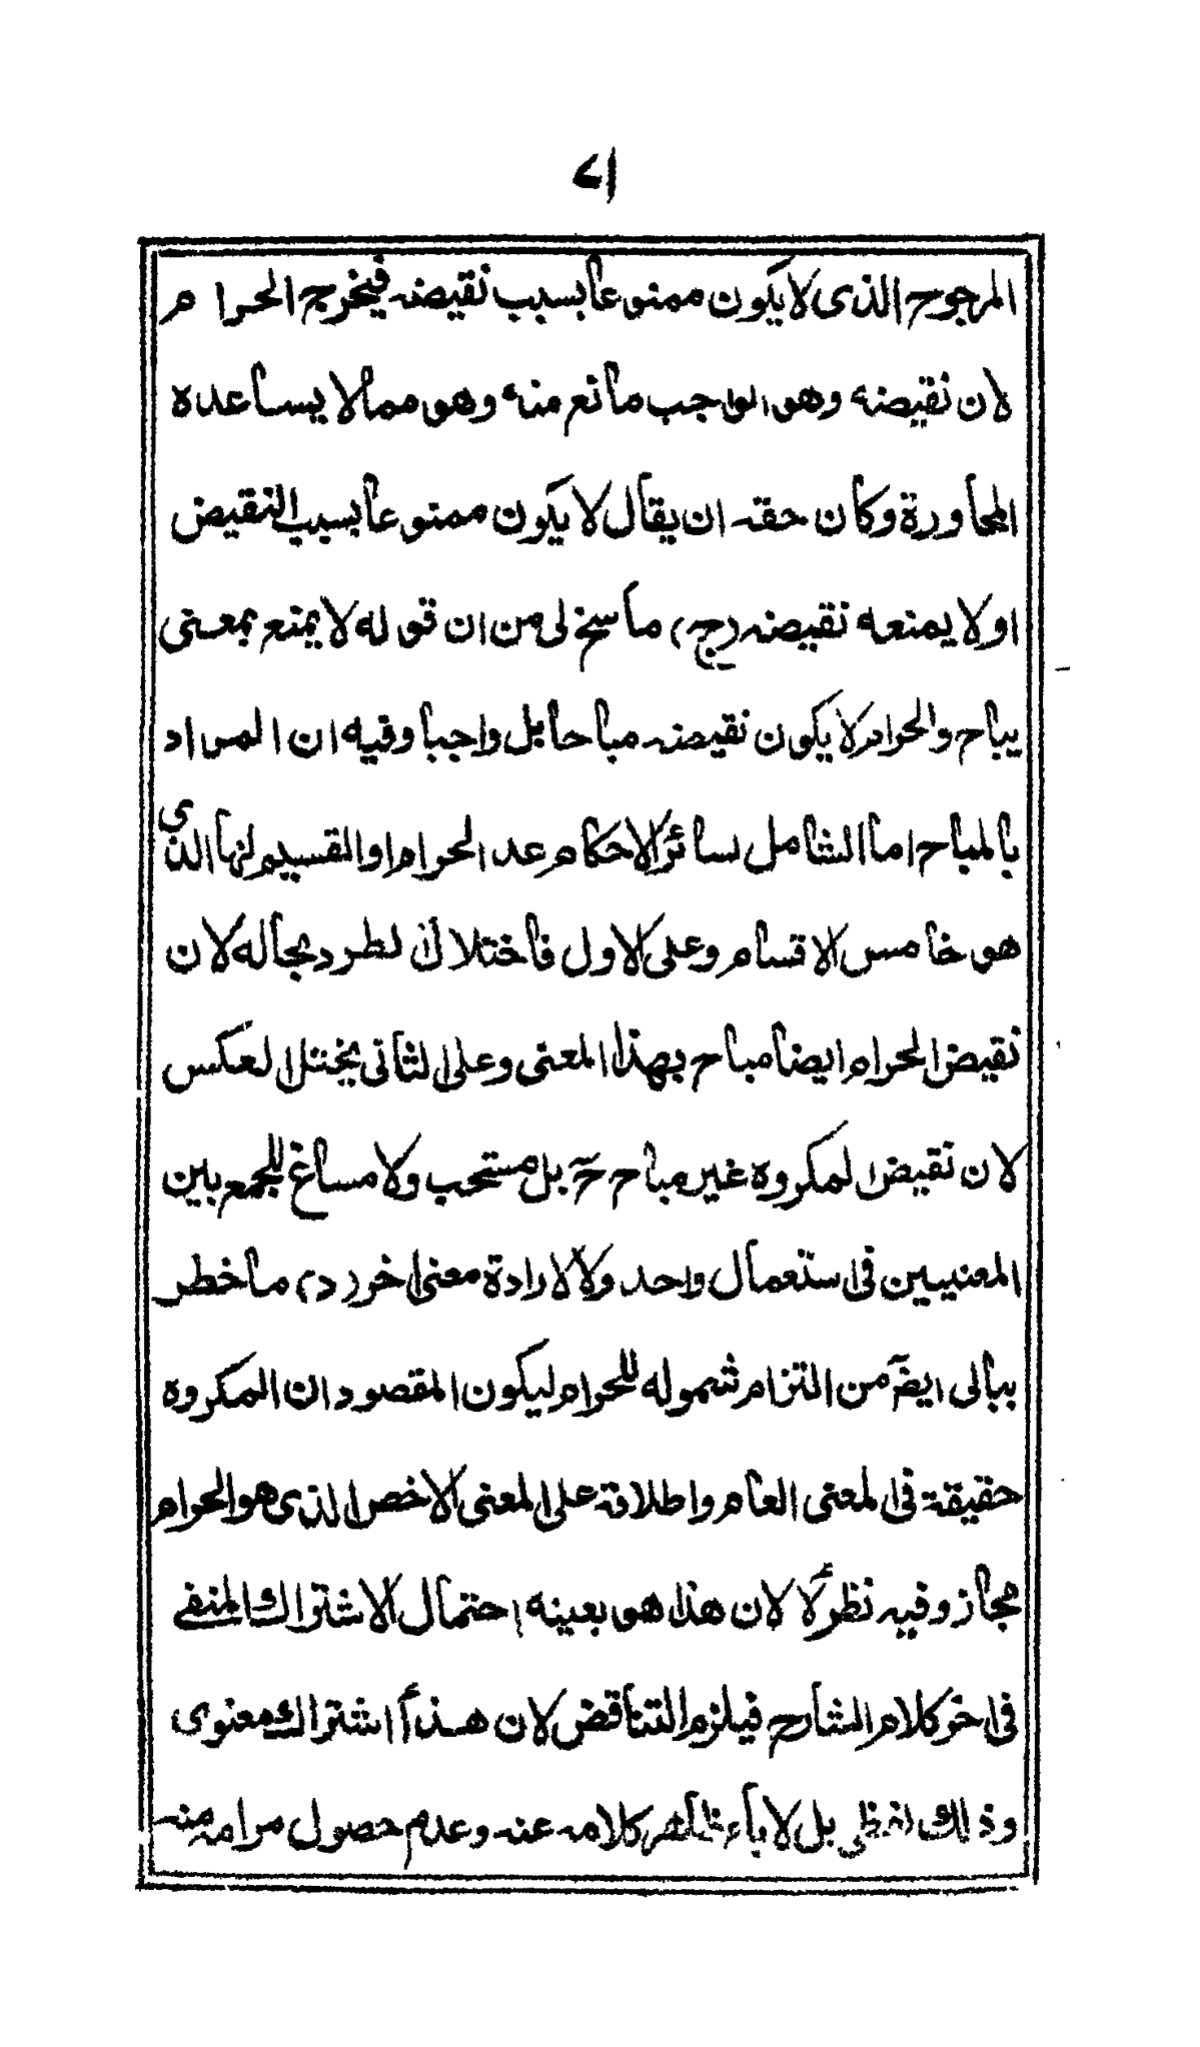 ۷۱
المرجوح الذى لا يكون ممنوعا بسبب نقيضه فيخرج الحرام
لان نقيضه وهو الواجب مانع منه وهو مما لا يساعده
المحاورة وكان حقه ان يقال لا يكون ممنوعا بسبب النقيض
او لا يمنعه نقيضه (ج) ما سنح لى من ان قوله لا يمنع بمعنى
يباح والحرام لا يكون نقيضه مباحا بل واجبا وفيه ان المراد
بالمباح اما الشامل لسائر الاحكام عد الحرام او القسيم لها الذى
هو خامس الاقسام وعلى الاول فاختلال لطرد بحاله لان
نقيض الحرام ايضا مباح بهذا المعنى وعلى الثانى يختل العكس
لان نقيض المكروه غير مباح حَ بل مستحب ولا مساغ للجمع بين
المعنيين فى استعمال واحد ولا لارادة معنى اخر (د) ما خطر
ببالى ايضَ من التزام شموله للحرام ليكون المقصود ان المكروه
حقيقة فى المعنى العام واطلاقه على المعنى الاخص الذى هو الحرام
مجاز وفيه نظر لا لان هذا هو بعينه احتمال الاشتراك المنفى
فى اخر كلام الشارح فيلزم التناقض لان هذا اشتراك معنوى
وذلك لفظى بل لاباء ظاهر كلامه عنه وعدم حصول مرامه منه